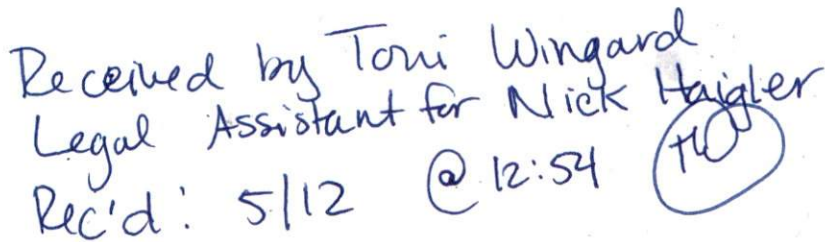 Received by Toni Wingard
Legal Assistant for Nick Haigler
Rec'd: 5/12 @ 12:54 TW